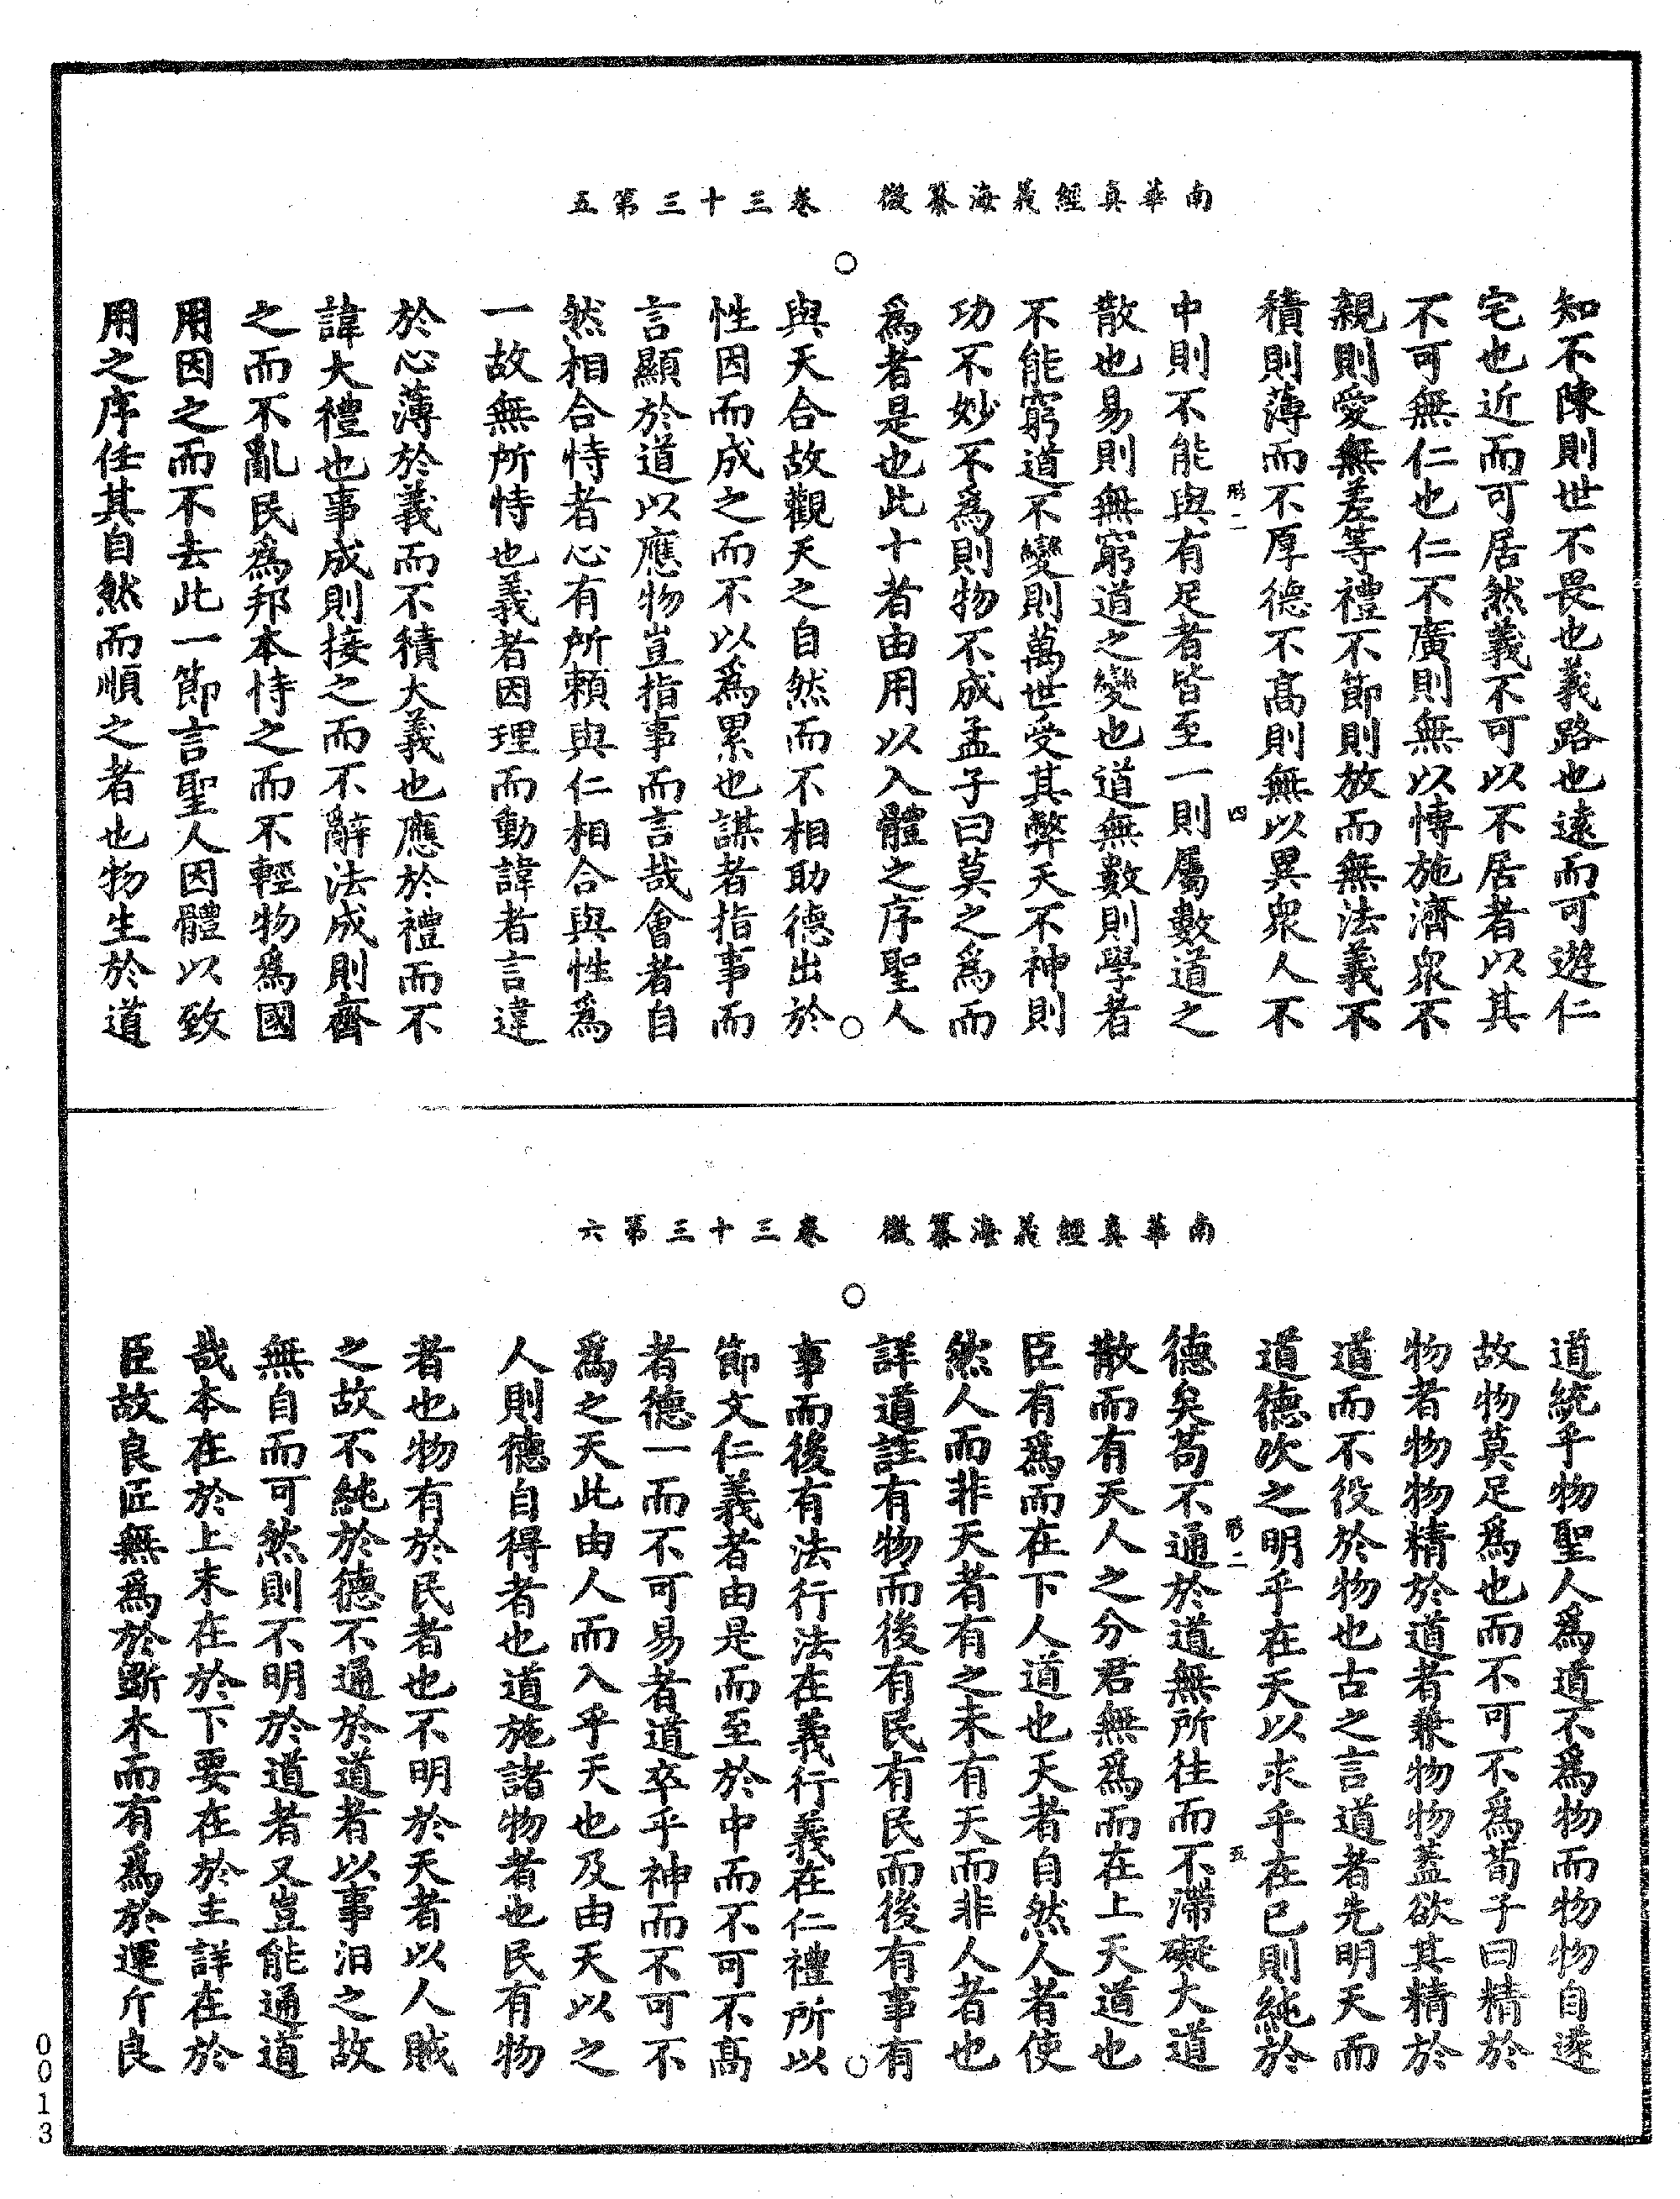 南華真經義海纂微　卷三十三第五
知不陳則世不畏也義路也遠而可遊仁
宅也近而可居然義不可以不居者以其
不可無仁也仁不廣則無以博施濟衆不
親則愛無差等禮不節則放而無法義不
積則薄而不厚德不高則無以異衆人不
形二　四
中則不能與有足者皆至一則屬數道之
散也易則無窮道之變也道無數則學者
不能窮道不變則萬世受其弊天不神則
功不妙不爲則物不成孟子曰莫之爲而
爲者是也此十者由用以入體之序聖人
與天合故觀天之自然而不相助德出於
性因而成之而不以爲累也謀者指事而
言顯於道以應物豈指事而言哉會者自
然相合恃者心有所賴與仁相合與性爲
一故無所恃也義者因理而動諱者言違
於心薄於義而不積大義也應於禮而不
諱大禮也事成則接之而不辭法成則齊
之而不亂民爲邦本恃之而不輕物爲國
用因之而不去此一節言聖人因體以致
用之序任其自然而順之者也物生於道
南華真經義海纂微　卷三十三第六
道統乎物聖人爲道不爲物而物物自遂
故物莫足爲也而不可不爲荀子曰精於
物者物物精於道者兼物物蓋欲其精於
道而不役於物也古之言道者先明天而
道德次之明乎在天以求乎在已則純於
形二　五
德矣苟不通於道無所往而不滯礙大道
散而有天人之分君無爲而在上天道也
臣有爲而在下人道也天者自然人者使
然人而非天者有之未有天而非人者也
詳道註有物而後有民有民而後有事有
事而後有法行法在義行義在仁禮所以
節文仁義者由是而至於中而不可不高
者德一而不可易者道卒乎神而不可不
爲之天此由人而入乎天也及由天以之
人則德自得者也道施諸物者也民有物
者也物有於民者也不明於天者以人賊
之故不純於德不通於道者以事汨之故
無自而可然則不明於道者又豈能通道
哉本在於上末在於下要在於主詳在於
臣故良匠無爲於斲木而有爲於運斤良
0013